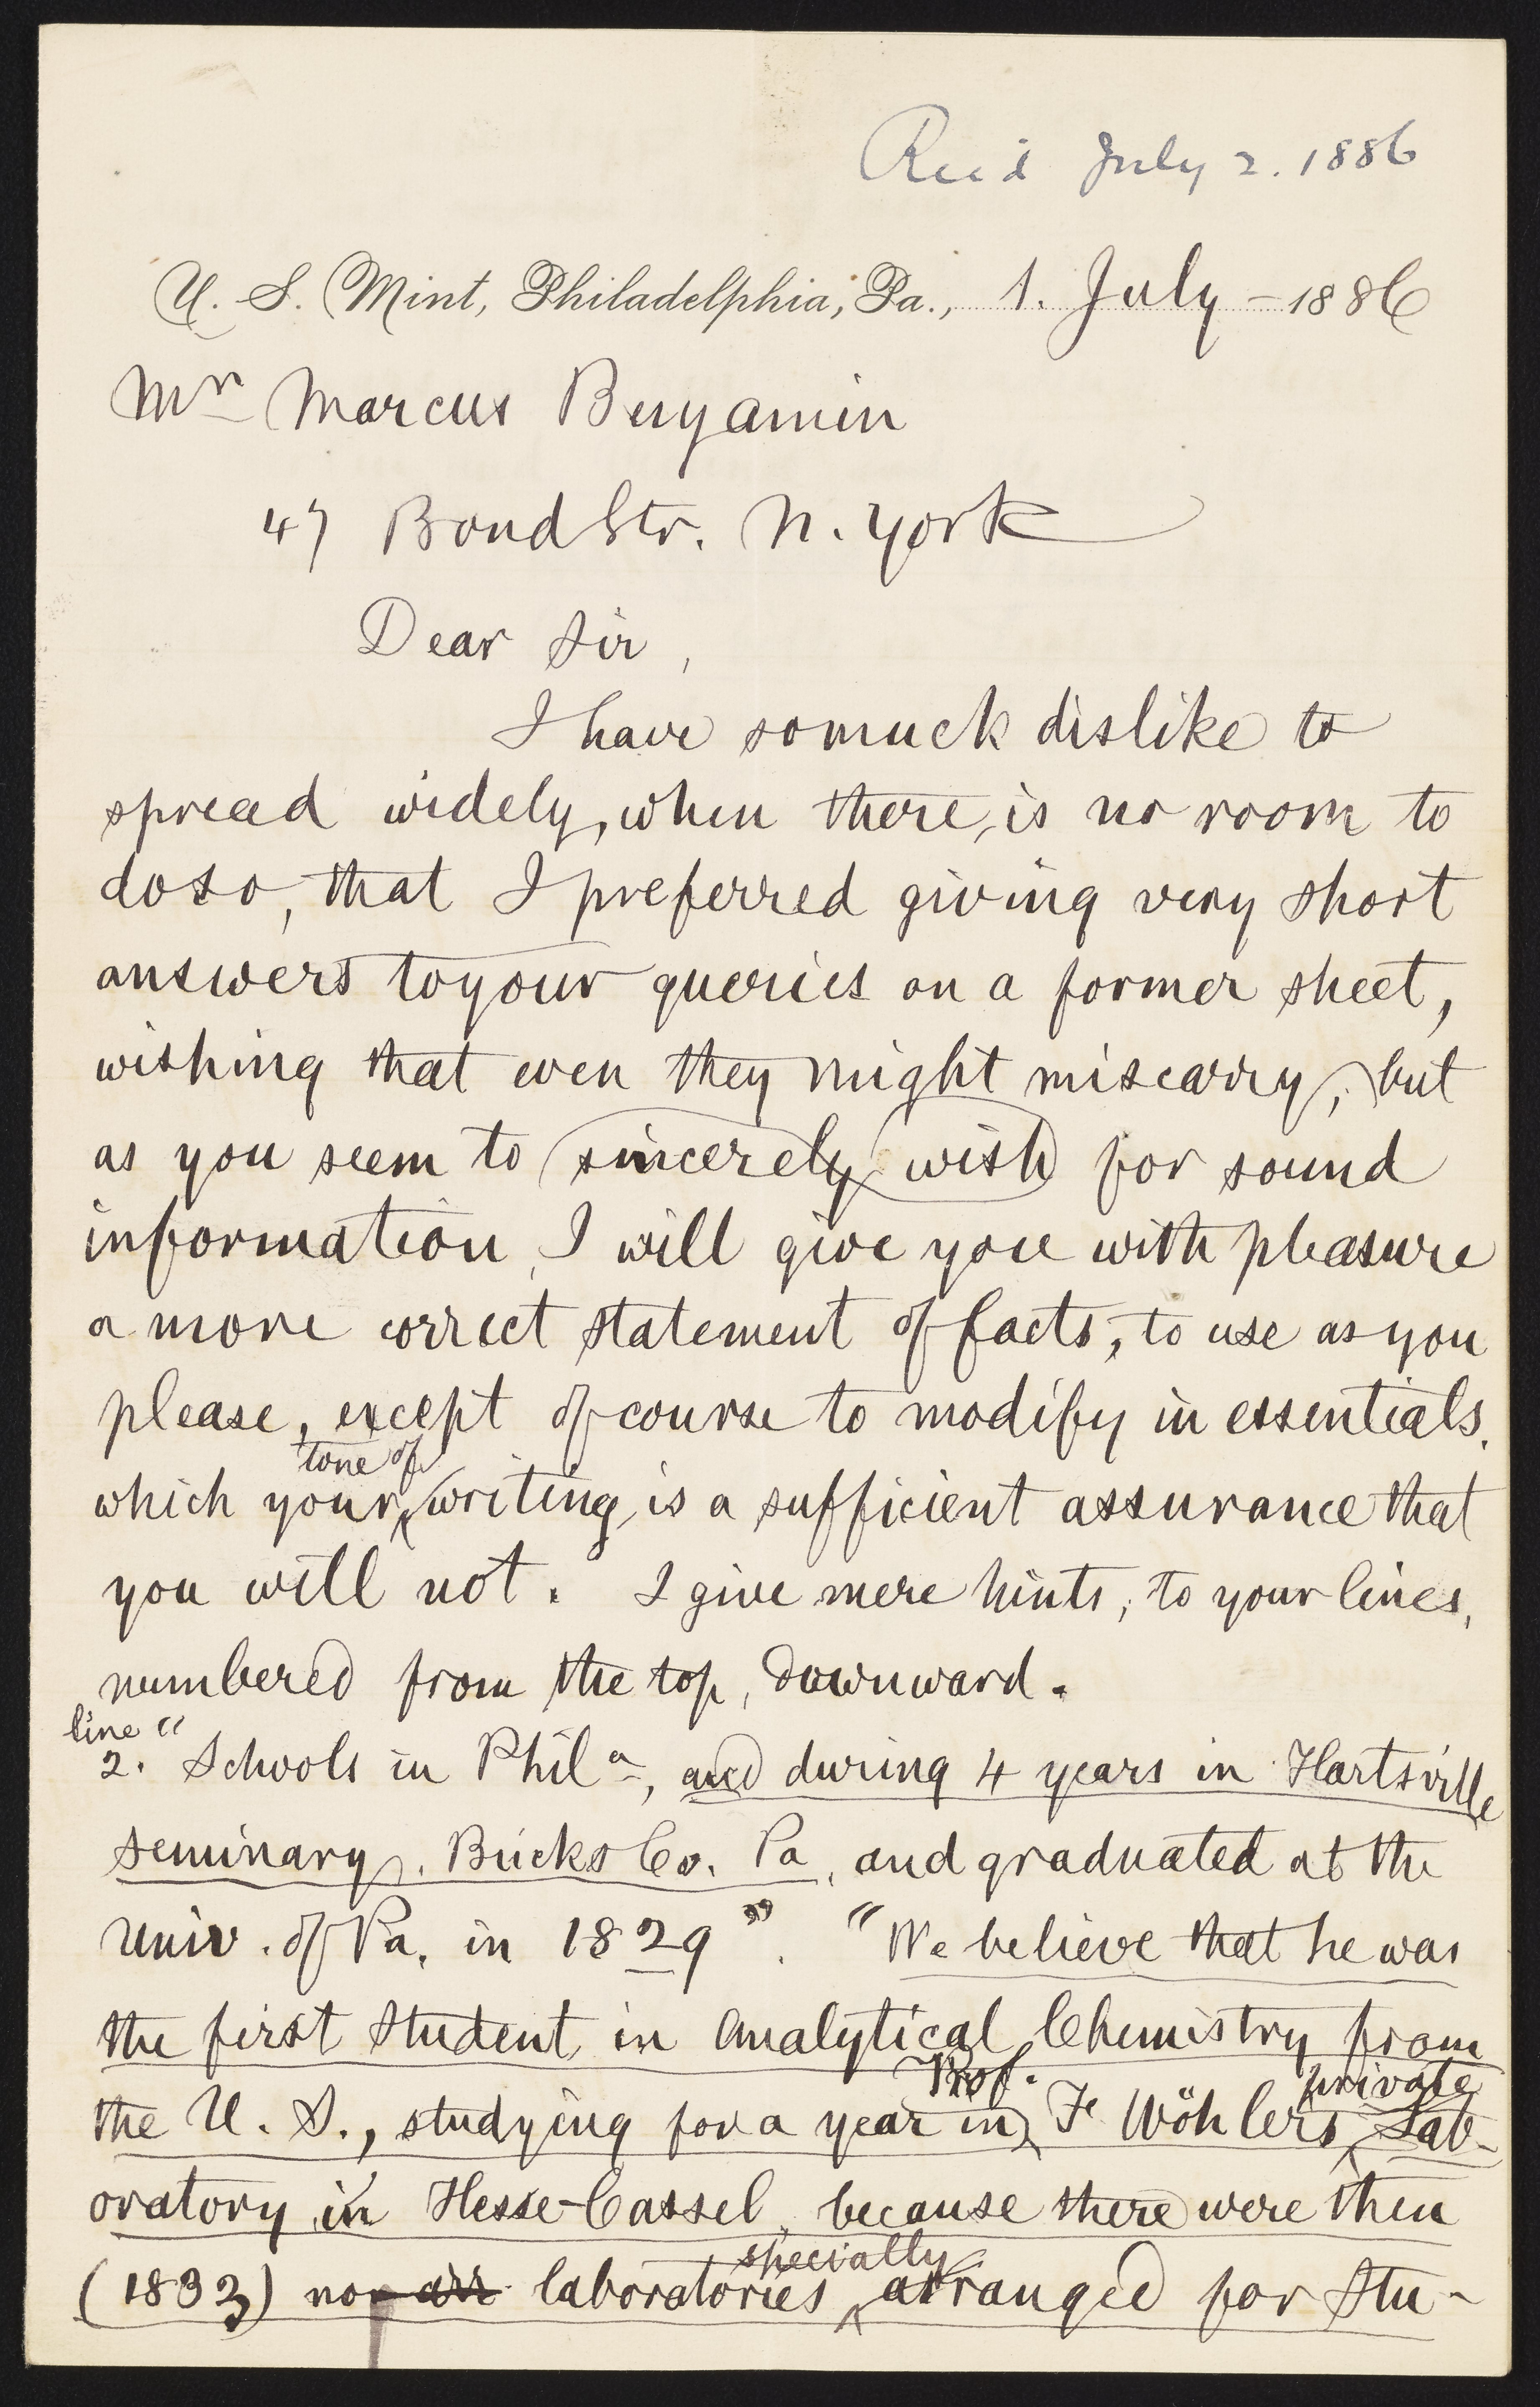 Rec'd July 2. 1886
U. S. Mint, Philadelphia, Pa., 1. July - 1886
Mr Marcus Benjamin
47 Bond Str. N. York
Dear Sir,
I have so much dislike to
spread widely, when there, is no room to
do so, that I preferred giving very short
answers to your queries on a former sheet,
wishing that even they might miscarry; but
as you seem to sincerely wish for sound
information, I will give you with pleasure
a more correct statement of facts, to use as you
please, except of course to modify in essentials.
tone of
which your writing, is a sufficient assurance that
you will not. I give mere hints, to your lines,
numbered from the top, downward.
line "
2. Schools in Phila, and during 4 years in Hartsville
seminary, Bucks Co. Pa, and graduated at the
Univ. of Pa. in 1829". "We believe that he was
the first student in Analytical Chemistry from
Prof. private
the U. S., studying for a year in Fr Wöhlers Lab-
oratory in Hesse-Cassel, because there were then
specially
(1833) no laboratories arranged for stu-